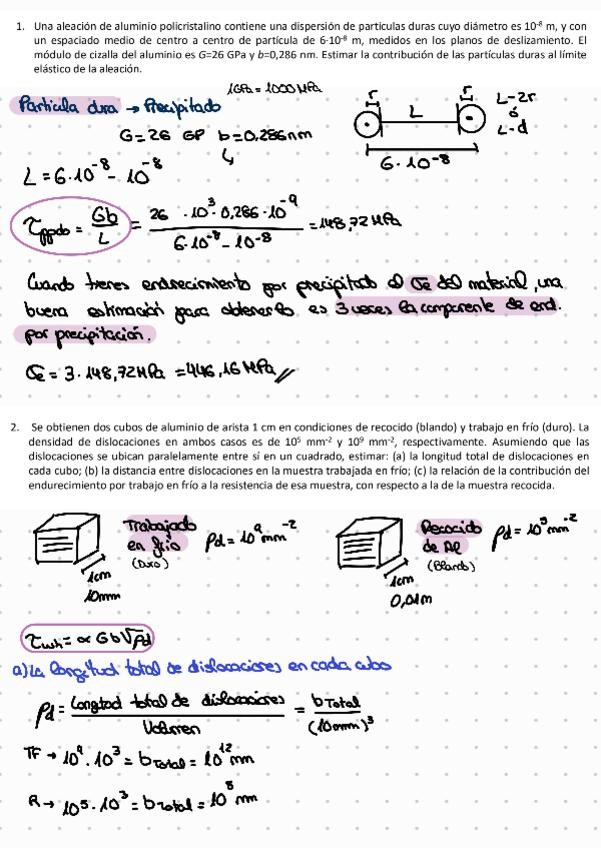 1. Una aleación de aluminio policristalino contiene una dispersión de partículas duras cuyo diámetro es 10⁻⁸ m, y con
un espaciado medio de centro a centro de partícula de 6·10⁻⁸ m, medidos en los planos de deslizamiento. El
módulo de cizalla del aluminio es G=26 GPa y b=0,286 nm. Estimar la contribución de las partículas duras al límite
elástico de la aleación.
1GPa = 1000 MPa
Partícula dura → Precipitado
G=26 GP b=0,286nm
r
L
r
L-2r
ó
L-d
6·10⁻⁸
L = 6·10⁻⁸ - 10⁻⁸
τppdo = Gb/L = 26 · 10³ · 0,286 · 10⁻⁹ / 6·10⁻⁸ - 10⁻⁸ = 148,72 MPa
Cuando tienes endurecimiento por precipitado el σe del material, una
buena estimación para obtenerlo es 3 veces la componente de end.
por precipitación.
σe = 3 · 148,72 MPa = 446,16 MPa //
2. Se obtienen dos cubos de aluminio de arista 1 cm en condiciones de recocido (blando) y trabajo en frío (duro). La
densidad de dislocaciones en ambos casos es de 10⁵ mm⁻² y 10⁹ mm⁻², respectivamente. Asumiendo que las
dislocaciones se ubican paralelamente entre sí en un cuadrado, estimar: (a) la longitud total de dislocaciones en
cada cubo; (b) la distancia entre dislocaciones en la muestra trabajada en frío; (c) la relación de la contribución del
endurecimiento por trabajo en frío a la resistencia de esa muestra, con respecto a la de la muestra recocida.
Trabajado
en frío
(Duro)
ρd = 10⁹ mm⁻²
1cm
10mm
Recocido
de Al
(Blando)
ρd = 10⁵ mm⁻²
1cm
0,01m
τwh = α Gb√ρd
a) La longitud total de dislocaciones en cada cubo
ρd = Longitud total de dislocaciones / Volumen = bTotal / (10mm)³
TF → 10⁹ · 10³ = bTotal = 10¹² mm
R → 10⁵ · 10³ = bTotal = 10⁸ mm